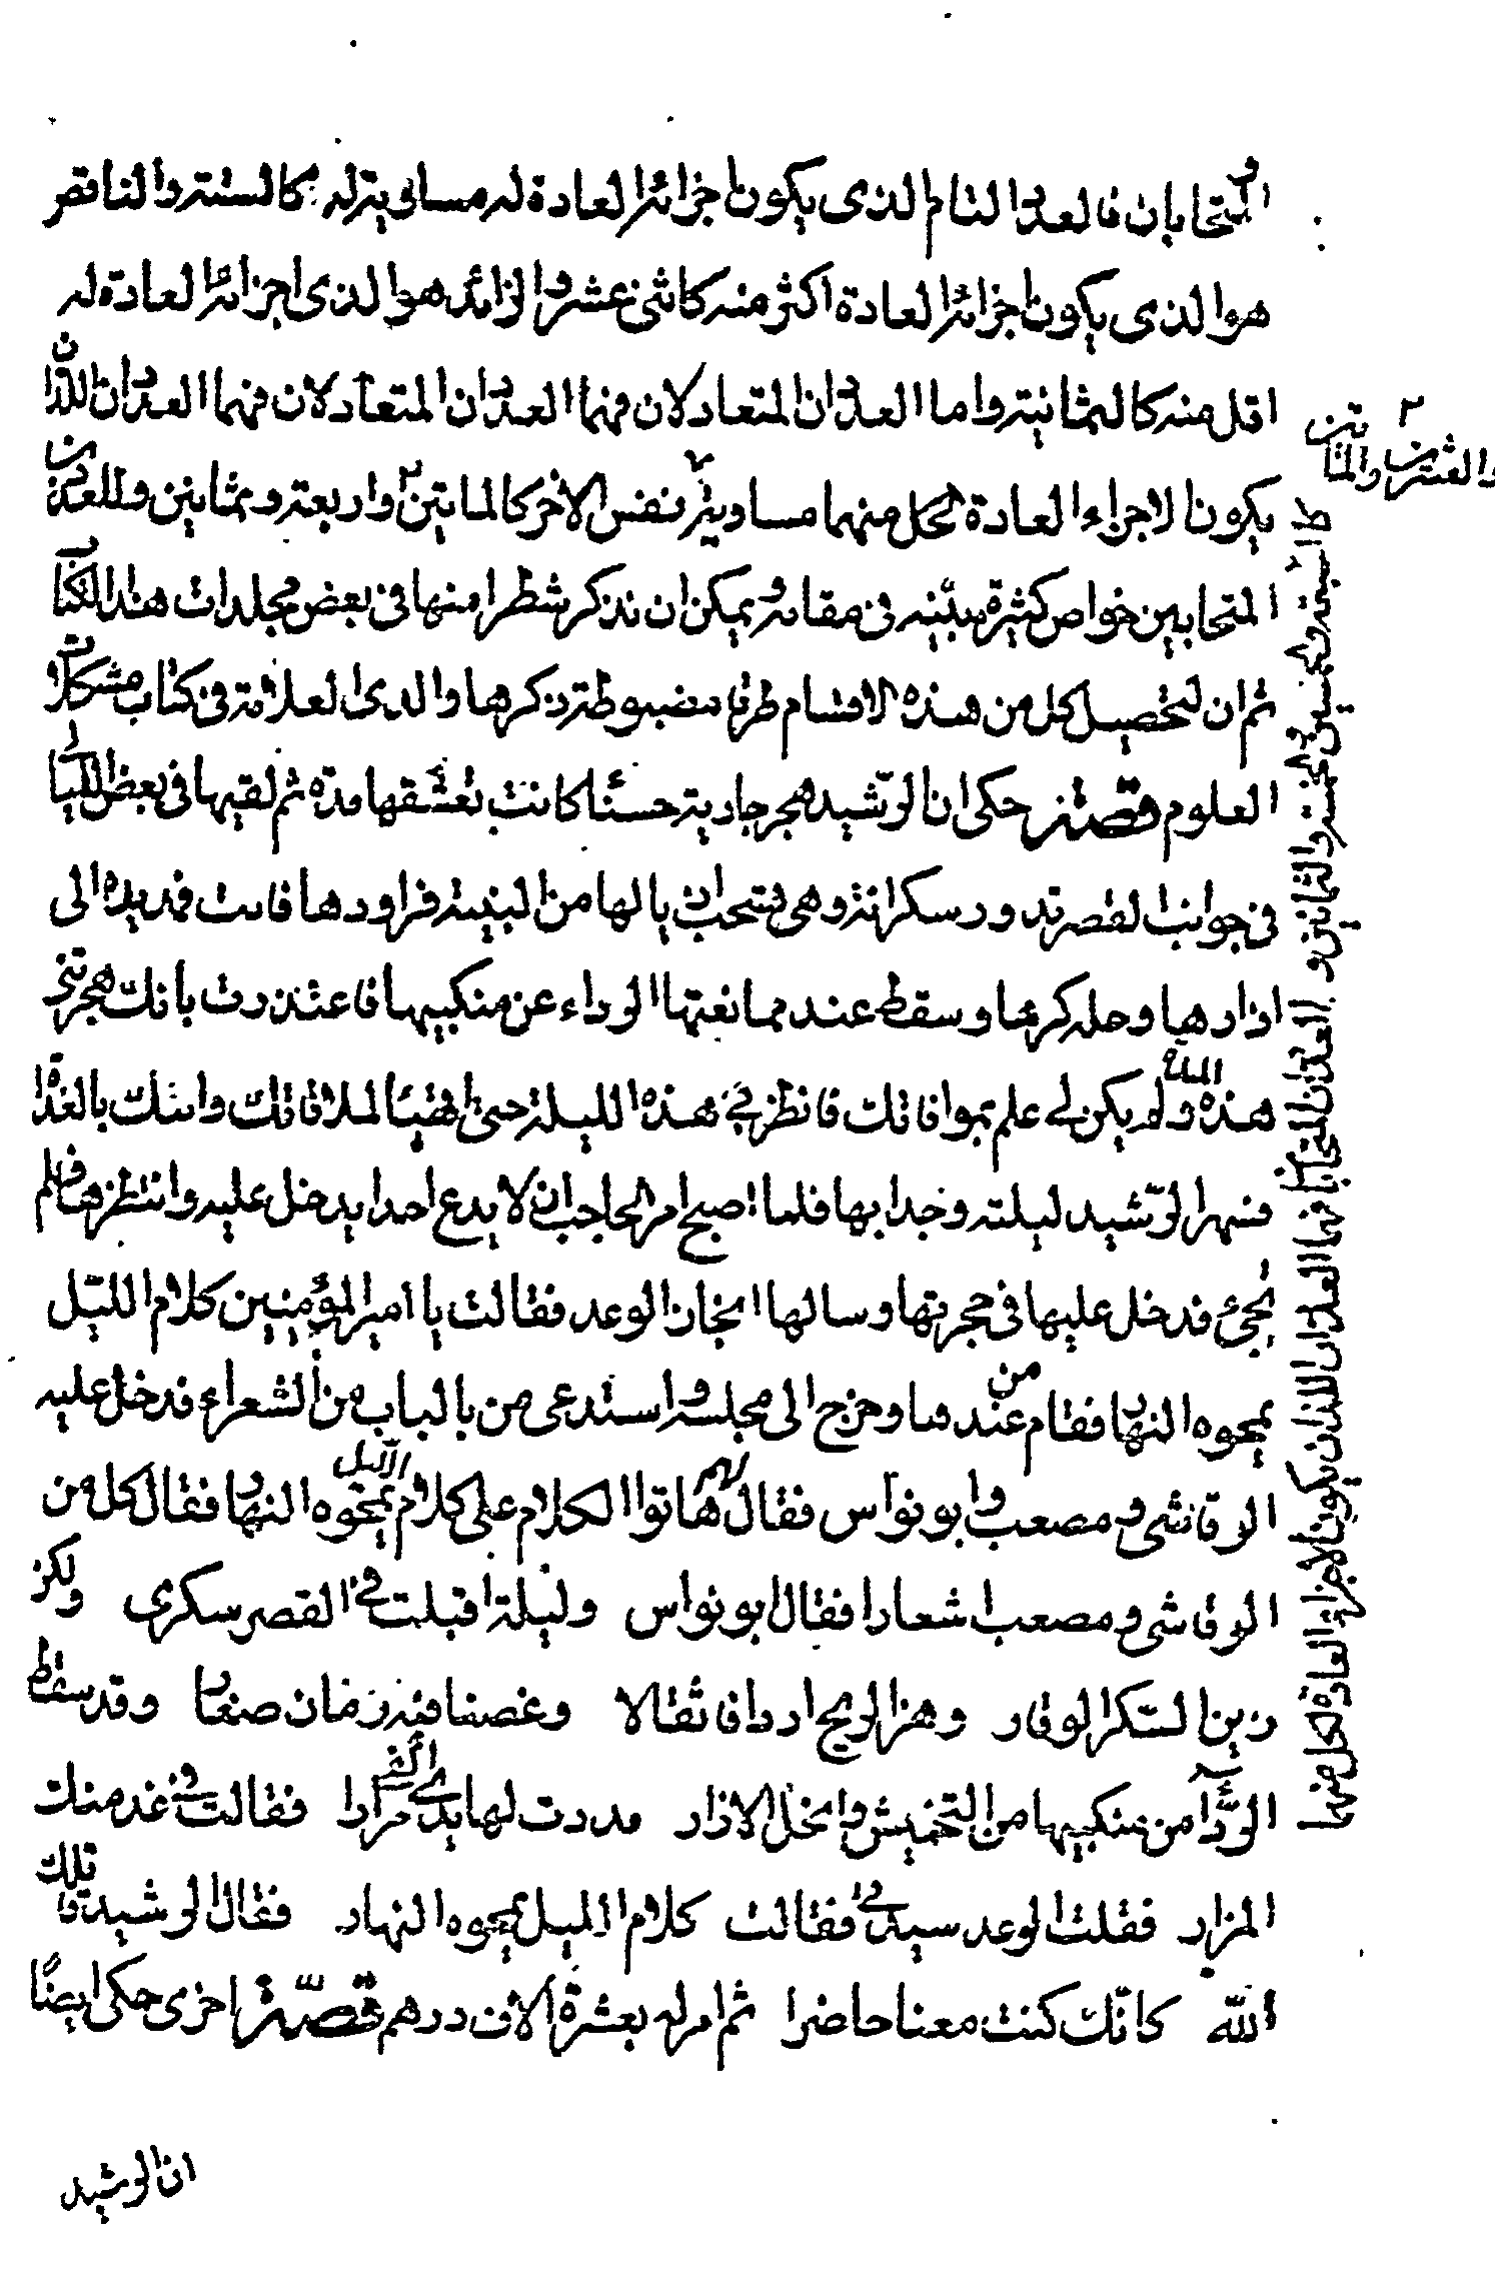 المتحابان فالعدد التام الذى يكون اجزائه العادة له مساوية له كالستة والناقص
هو الذى يكون اجزائه العادة اكثر منه كاثنى عشر والزائد هو الذى اجزائه العادة له
اقل منه كالثمانية واما العددان المتعادلان فهما العددان المتعادلان فهما العددان اللذان
يكون الاجزاء العادة لكل منهما مساوية نفس الاخر كالمايتين واربعة وثمانين وللعددين
المتحابين خواص كثيرة مبينه فى مقامه ويمكن ان نذكر شطرا منها فى بعض مجلدات هذا الكتاب
ثم ان لتحصيل كل من هذه الاقسام طرقا مضبوطة ذكرها والدى العلامة فى كتاب مشكلات
العلوم قصة حكى ان الرشيد هجر جارية حسنا كانت تعشقها مدة ثم لقيها فى بعض الليالى
فى جوانب القصر تدور سكرانة وهى تسحب اذيالها من التيه فراودها فابت فمد يده الى
ازارها وحله كرها وسقط عند ممانعتها الرداء عن منكبيها فاعتذرت بانك هجرتنى
هذه المدة ولم يكن لى علم بموافاتك فانظرنى هذه الليلة حتى اتهيئا لملاقاتك واتيتك بالغداة
فسهر الرشيد ليلته وجدا بها فلما اصبح امر الحاجب ان لا يدع احدا يدخل عليه وانتظرها فلم
تجئ فدخل عليها فى حجرتها وسالها انجاز الوعد فقالت يا امير المؤمنين كلام الليل
يمحوه النهار فقام من عندها وخرج الى مجلسه واستدعى من بالباب من الشعراء فدخل عليه
الرقاشى و مصعب وابو نواس فقال لهم هاتوا الكلام على كلام الليل يمحوه النهار فقال كل من
الرقاشى و مصعب اشعارا فقال ابو نواس وليلة اقبلت فى القصر سكرى ولكن
زين السكر الوقار وهز الريح اردافا ثقالا وغصنا فيه رمان صغار وقد سقط
الردآء من منكبيها من التخميش وانحل الازار مددت لها يدى مرارا فقالت فى غد منك
المزار فقلت الوعد سيدتى فقالت كلام الليل يمحوه النهار فقال الرشيد قاتلك
الله كانك كنت معنا حاضرا ثم امر له بعشرة الاف درهم قصة اخرى حكى ايضا
ان الرشيد
٢ والعشرين والمائتين
كالسبعة والخمسين والخمسة والثمانين و العددان المتحابان فهما العددان اللذان يكون الاجزاء العادة لكل منهما